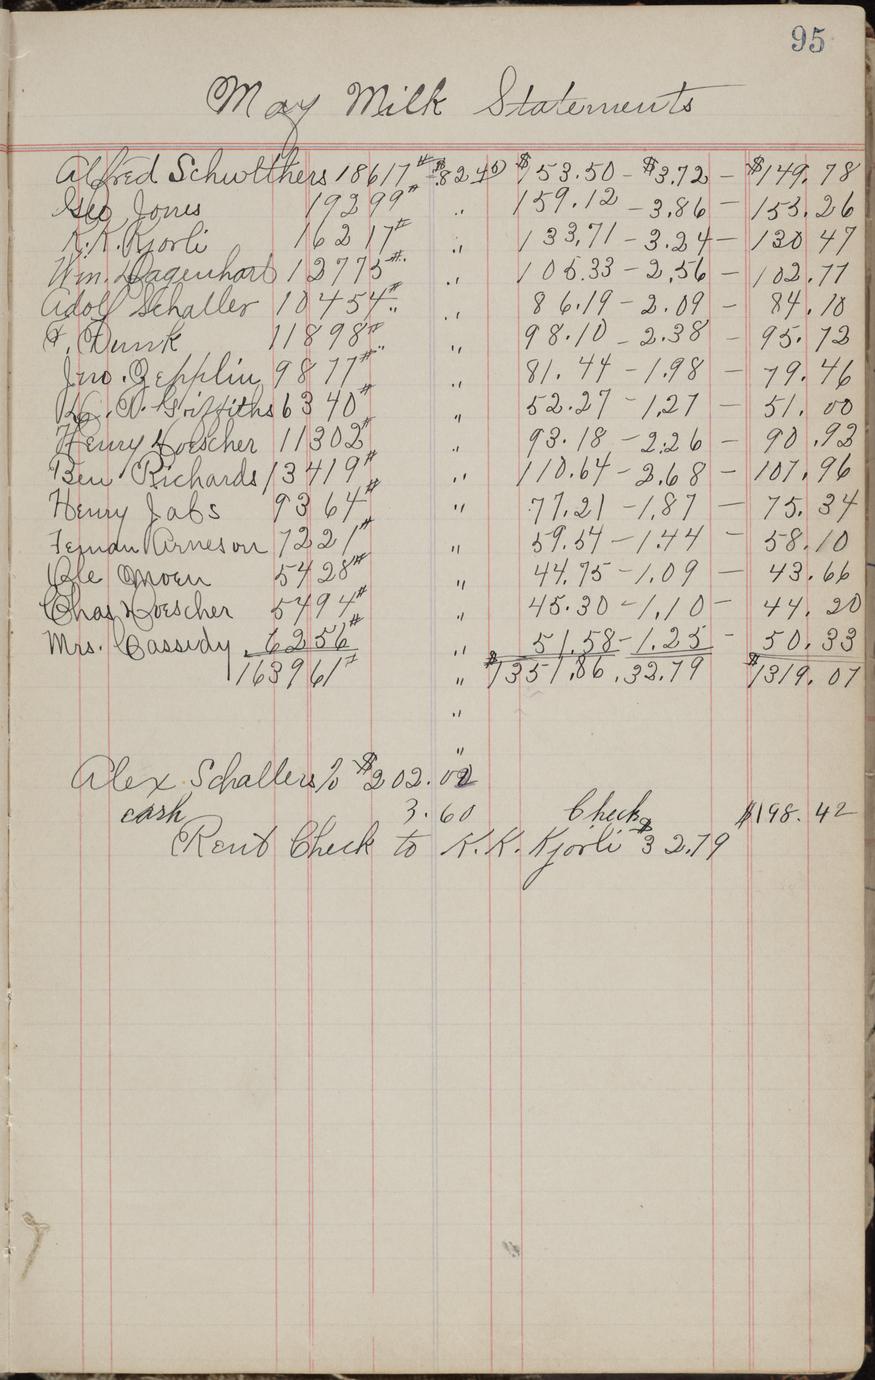 95
May Milk Statements
Alfred Schwlthers 18617# $.8240 $153.50 - $3.72 - $149.78
Geo Jones 19299# ,, 159.12 - 3.86 - 155.26
K.K. Kjorli 16217# ,, 133.71 - 3.24 - 130 47
Wm. Dagenhart 12775# ,, 105.33 - 2.56 - 102.77
Adolf Schaller 10454# ,, 86.19 - 2.09 - 84.10
F. Dunk 11898# ,, 98.10 - 2.38 - 95.72
Jno. Zepplin 9877# ,, 81.44 - 1.98 - 79.46
Griffiths 6340# ,, 52.27 - 1.27 - 51.00
Henry Loescher 11302# ,, 93.18 - 2.26 - 90.92
Ben Richards 13419# ,, 110.64 - 2.68 - 107.96
Henry Jabs 9364# ,, 77.21 - 1.87 - 75.34
Teman Arneson 7221# ,, 59.54 - 1.44 - 58.10
Ole Moen 5428# ,, 44.75 - 1.09 - 43.66
Chas Loescher 5494# ,, 45.30 - 1.10 - 44.20
Mrs. Cassidy 6256# ,, 51.58 - 1.25 - 50.33
163961# ,, $1351.86 . 32.79 $1319.07
,,
,,
Alex Schallers % $202.02
cash 3.60 Check $198.42
Rent Check to K.K. Kjorli $32.79